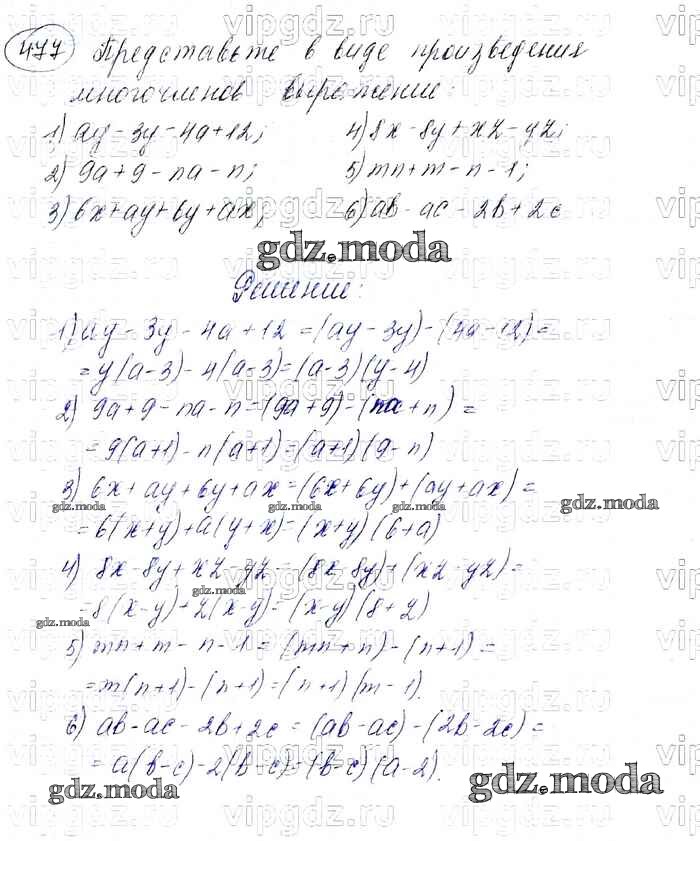 477 Представьте в виде произведения
многочленов выражение:
1) ay - 3y - 4a + 12; 4) 8x - 8y + xz - yz;
2) 9a + 9 - na - n; 5) mn + m - n - 1;
3) 6x + ay + 6y + ax; 6) ab - ac - 2b + 2c
gdz.moda
Решение:
1) ay - 3y - 4a + 12 = (ay - 3y) - (4a - 12) =
= y(a - 3) - 4(a - 3) = (a - 3)(y - 4)
2) 9a + 9 - na - n = (9a + 9) - (na + n) =
= 9(a + 1) - n(a + 1) = (a + 1)(9 - n)
3) 6x + ay + 6y + ax = (6x + 6y) + (ay + ax) =
gdz.moda gdz.moda
= 6(x + y) + a(y + x) = (x + y)(6 + a)
4) 8x - 8y + xz - yz = (8x - 8y) + (xz - yz) =
= 8(x - y) + z(x - y) = (x - y)(8 + z)
gdz.moda gdz.moda
5) mn + m - n - 1 = (mn + m) - (n + 1) =
= m(n + 1) - (n + 1) = (n + 1)(m - 1).
6) ab - ac - 2b + 2c = (ab - ac) - (2b - 2c) =
= a(b - c) - 2(b - c) = (b - c)(a - 2).
gdz.moda gdz.moda
vipgdz.ru